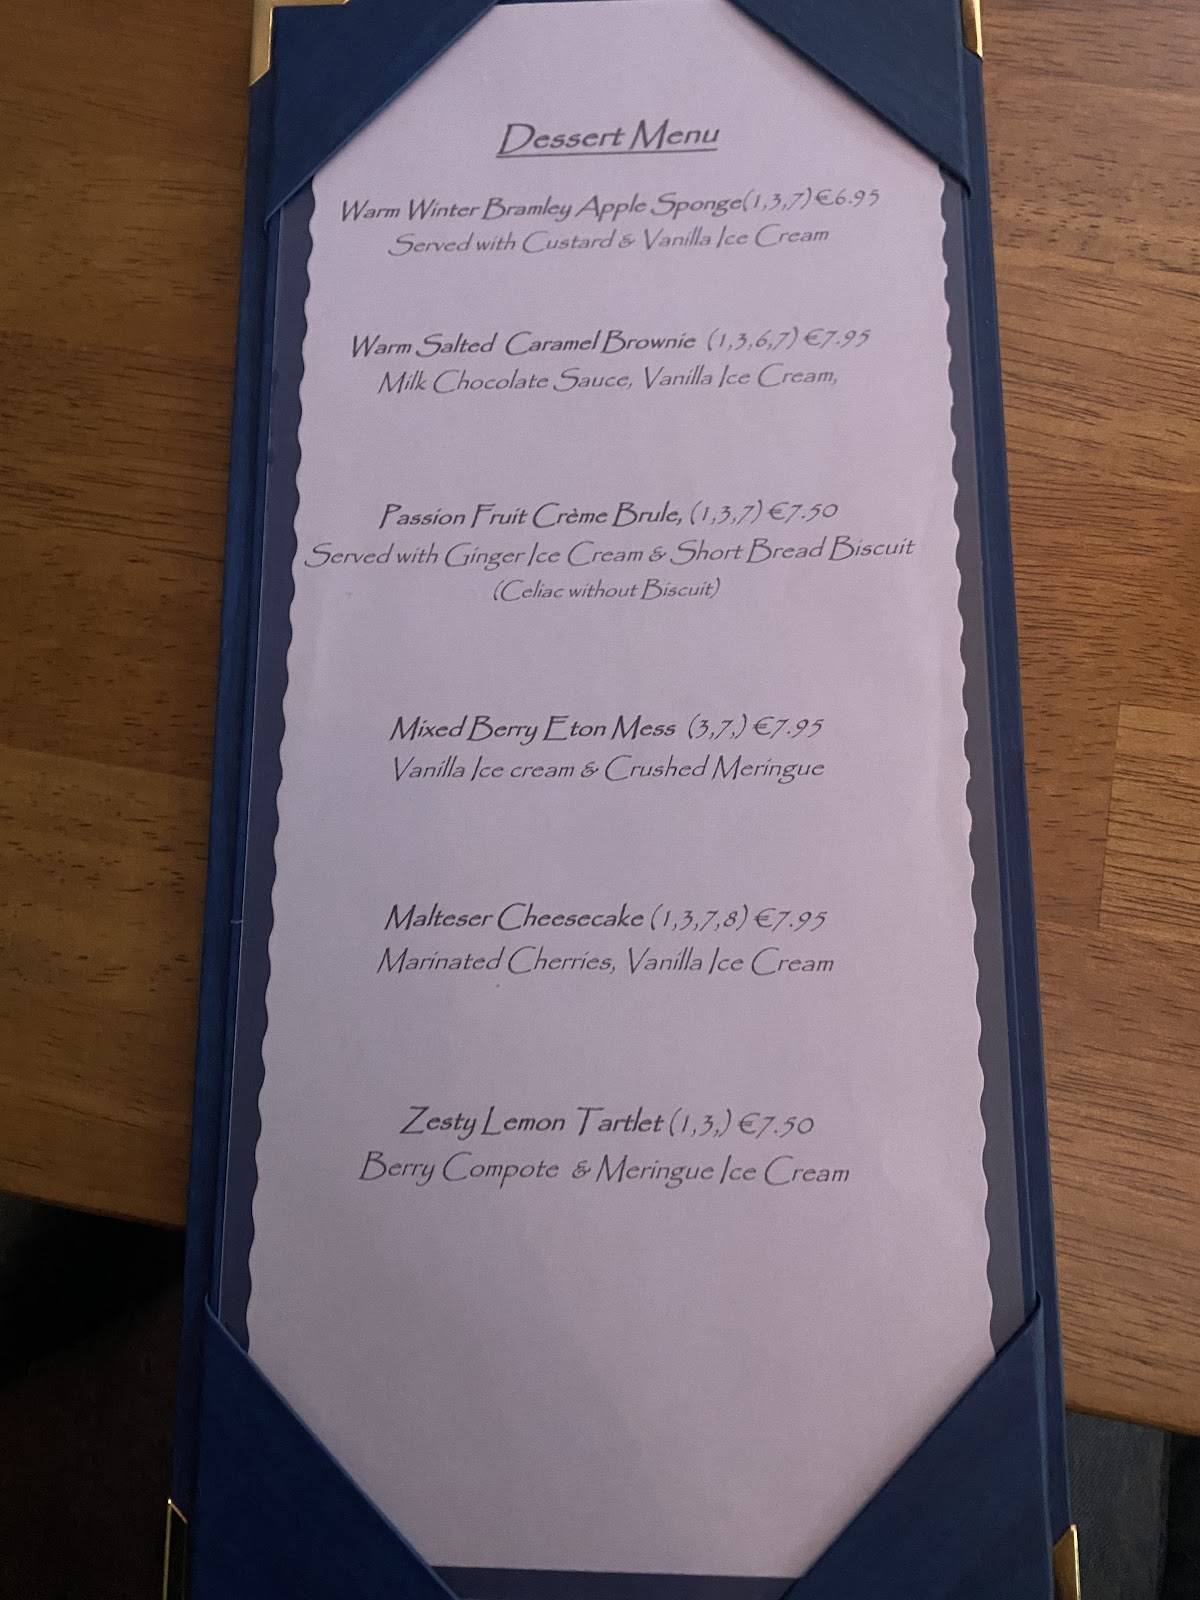 Dessert Menu
Warm Winter Bramley Apple Sponge(1,3,7) €6.95
Served with Custard & Vanilla Ice Cream
Warm Salted Caramel Brownie (1,3,6,7) €7.95
Milk Chocolate Sauce, Vanilla Ice Cream,
Passion Fruit Crème Brule, (1,3,7) €7.50
Served with Ginger Ice Cream & Short Bread Biscuit
(Celiac without Biscuit)
Mixed Berry Eton Mess (3,7,) €7.95
Vanilla Ice cream & Crushed Meringue
Malteser Cheesecake (1,3,7,8) €7.95
Marinated Cherries, Vanilla Ice Cream
Zesty Lemon Tartlet (1,3,) €7.50
Berry Compote & Meringue Ice Cream